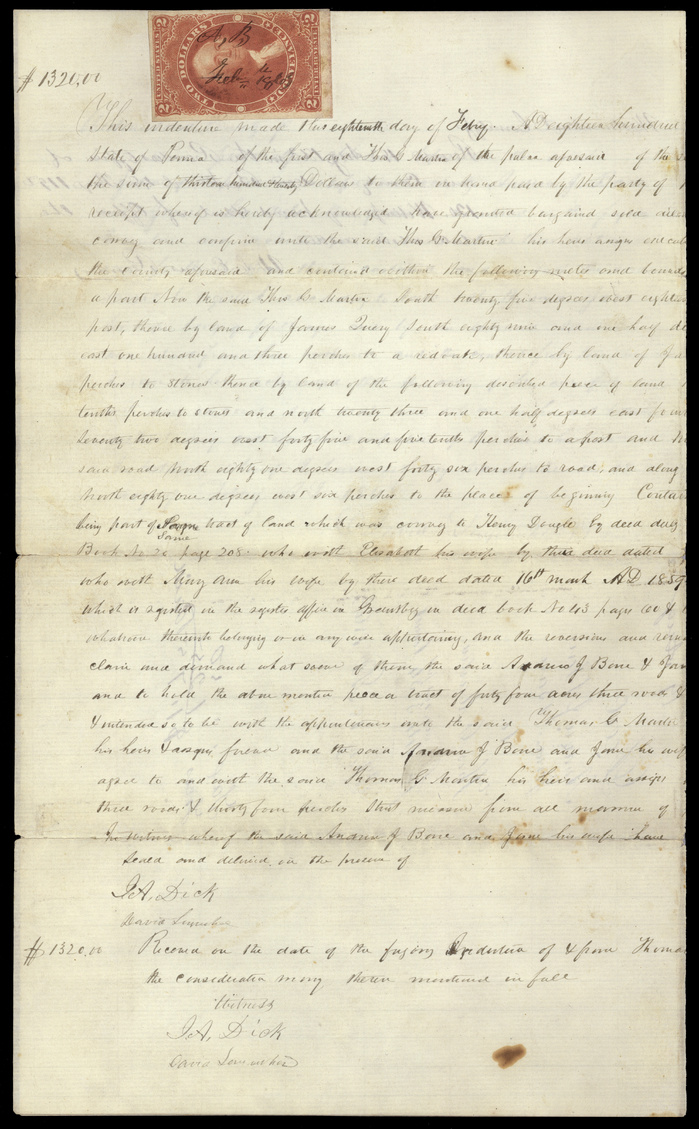 2 TWO DOLLARS CONVEYANCE 2
A, B
Feb
$1320.00
This indenture made this eighteenth day of Feby. AD eighteen hundred
State of Penna of the first and Thos G Martin of the palce aforesaid of the
the sum of thirteen hundred & twenty Dollars to them in hand paid by the party of
receipt whereof is hereby acknowledged have granted bargained sold
convey and confirm unto the said Thos G Martin his heirs
the County aforesaid and contained within the following metes and bounds
a post Now the said Thos G Martin South twenty five degrees west eighteen
post, thence by land of James Query South eighty nine and one half de
east one hundred and three perches to a red oak, thence by land of
perches to stones thence by land of the following described peece of land
tenths perches to stones and north twenty three and one half degrees east four
seventy two degrees west forty five and five tenths perches to a post and
said road North eighty one degrees west forty six perches to road, and along
North eighty one degrees west six perches to the place of beginning
being part of Same tract of land which was convey to Henry by deed
Same
Book No 20 page 208 who with Elizabeth his wife by there deed dated
who with Mary Ann his wife by there deed dated 16th march AD 1859
which is in the office in in deed book No 43 pages
whatsoever thereunto belonging or in any wise appertaining, and the reversions and
claim and demand what soever of them the said Andrew J Bone &
and to hold the above mention peece or tract of forty four acres three roods &
& intended so to be with the appurtenances unto the said Thomas G Martin
his heirs & assigns forever and the said Andrew J Bone and Jane his wife
agree to and with the said Thomas G Martin his heirs and assigns
three roods & thirty four perches strict measure from all manner of
In witness whereof the said Andrew J Bone and Jane his wife have
Sealed and delivered in the presence of
J A, Dick
David
$1320.00
Received on the date of the Indenture of & from Thomas
the consideration mony therein mentioned in full
Witness
J A, Dick
David